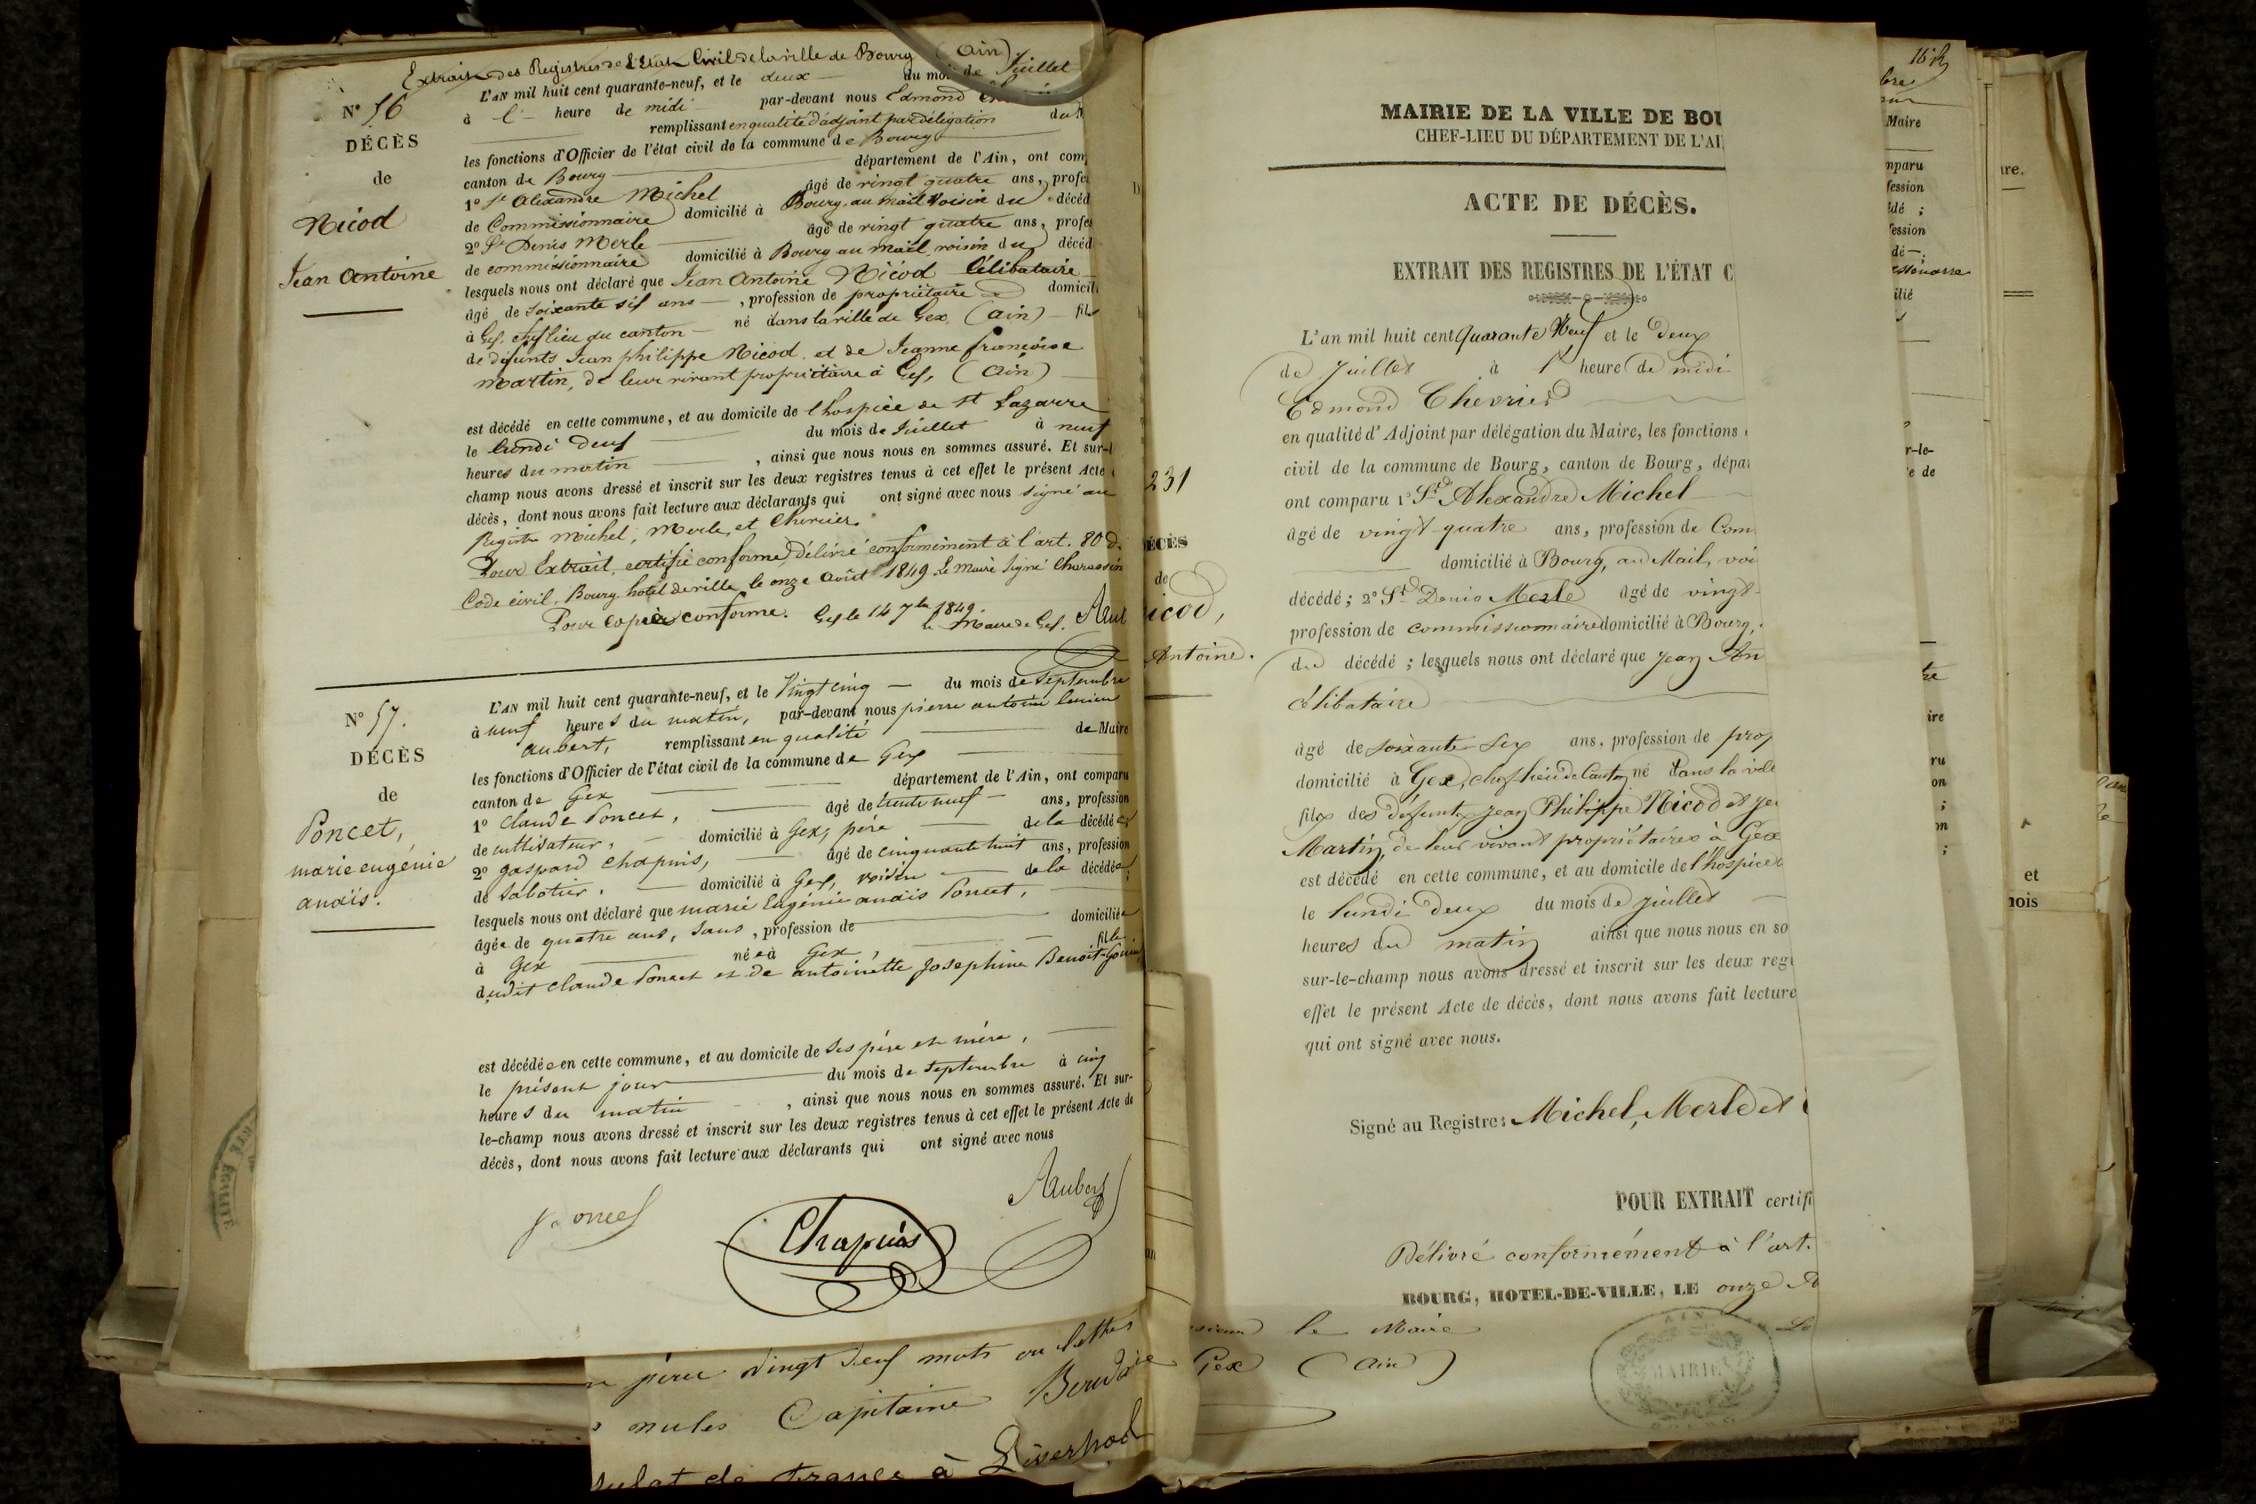 Extrait des Registres de L'Etat Civil de la ville de Bourg (Ain)
N° 56
DÉCÈS
de
Nicod
Jean Antoine
L'AN mil huit cent quarante-neuf, et le deux du mois de Juillet
à l' heure de midi par-devant nous Edmond
remplissant en qualité d'adjoint par délégation du
les fonctions d'Officier de l'état civil de la commune de Bourg
canton de Bourg département de l'Ain, ont com
1° Sr Alexandre Michel âgé de vingt quatre ans, profes
de Commissionnaire domicilié à Bourg, au Mail voisin du décéd
2° Sr Denis Merle âgé de vingt quatre ans, profes
de commissionnaire domicilié à Bourg au mail, voisin du décéd
lesquels nous ont déclaré que Jean Antoine Nicod Célibataire
âgé de soixante six ans, profession de propriétaire domicil
à Gex, chef lieu du canton né dans la ville de Gex (Ain) fils
de défunts Jean philippe Nicod et de Jeanne françoise
Martin, de leur vivant propriétaire à Gex, (Ain)
est décédé en cette commune, et au domicile de l'hospice de St Lazarre
le lundi deux du mois de Juillet à neuf
heures du matin, ainsi que nous nous en sommes assuré. Et sur-l
champ nous avons dressé et inscrit sur les deux registres tenus à cet effet le présent Acte
décès, dont nous avons fait lecture aux déclarants qui ont signé avec nous signé au
Registre Michel, Merle, et Chevrier.
Pour Extrait certifié conforme, Délivré conformément à l'art. 80 d
Code civil. Bourg hotel de ville, le onze Août 1849 Le Maire signé
Pour copie conforme. Gex le 14 7bre 1849.
le Maire de Gex. Aub
N° 57.
DÉCÈS
de
Poncet,
marie eugénie
anaïs.
L'AN mil huit cent quarante-neuf, et le Vingt cinq du mois de Septembre
à neuf heures du matin, par-devant nous pierre antoine
aubert, remplissant en qualité de Maire
les fonctions d'Officier de l'état civil de la commune de Gex
canton de Gex département de l'Ain, ont comparu
1° Claude Poncet, âgé de trente neuf ans, profession
de cultivateur, domicilié à Gex, père de la décédée
2° gaspard Chapuis, âgé de cinquante huit ans, profession
de Sabotier, domicilié à Gex, voisin de la décédée;
lesquels nous ont déclaré que marie Eugénie anaïs Poncet,
âgée de quatre ans, sans, profession de domiciliée
à Gex née à Gex, fille
dudit Claude Poncet et de antoinette Josephine Benoit-Gonin
est décédée en cette commune, et au domicile de ses père et mère,
le présent jour du mois de septembre à cinq
heures du matin, ainsi que nous nous en sommes assuré. Et sur-
le-champ nous avons dressé et inscrit sur les deux registres tenus à cet effet le présent Acte de
décès, dont nous avons fait lecture aux déclarants qui ont signé avec nous
Poncet
Chapuis
Aubert
père vingt deux mots ou lettres
nules Capitaine
de France à Liverpool
231
DÉCÈS
de
icod,
Antoine.
MAIRIE DE LA VILLE DE BOU
CHEF-LIEU DU DÉPARTEMENT DE L'AI
ACTE DE DÉCÈS.
EXTRAIT DES REGISTRES DE L'ÉTAT C
L'an mil huit cent quarante Neuf et le Deux
de Juillet à l' heure de midi
Edmond Chevrier
en qualité d'Adjoint par délégation du Maire, les fonctions
civil de la commune de Bourg, canton de Bourg, dépar
ont comparu 1° Sr Alexandre Michel
âgé de vingt quatre ans, profession de Com
domicilié à Bourg, au Mail, voi
décédé; 2° Sr Denis Merle âgé de vingt-
profession de commissionnaire domicilié à Bourg,
du décédé; lesquels nous ont déclaré que Jean An
célibataire
âgé de soixante six ans, profession de prop
domicilié à Gex, chef-lieu de Canton, né dans la vill
fils des défunts Jean Philippe Nicod et Je
Martin, de leur vivant propriétaires à Gex
est décédé en cette commune, et au domicile de l'hospice d
le lundi deux du mois de juillet
heures du matin ainsi que nous nous en so
sur-le-champ nous avons dressé et inscrit sur les deux regi
effet le présent Acte de décès, dont nous avons fait lecture
qui ont signé avec nous.
Signé au Registre: Michel, Merle et
POUR EXTRAIT certifi
Délivré conformément à l'art.
BOURG, HOTEL-DE-VILLE, LE onze A
le Maire
Gex (Ain)
AIN
MAIRIE
BOURG
Maire
mparu
fession
édé ;
fession
dé
ilié
r-le-
e de
ire
ru
on
;
on
;
ire.
et
mois